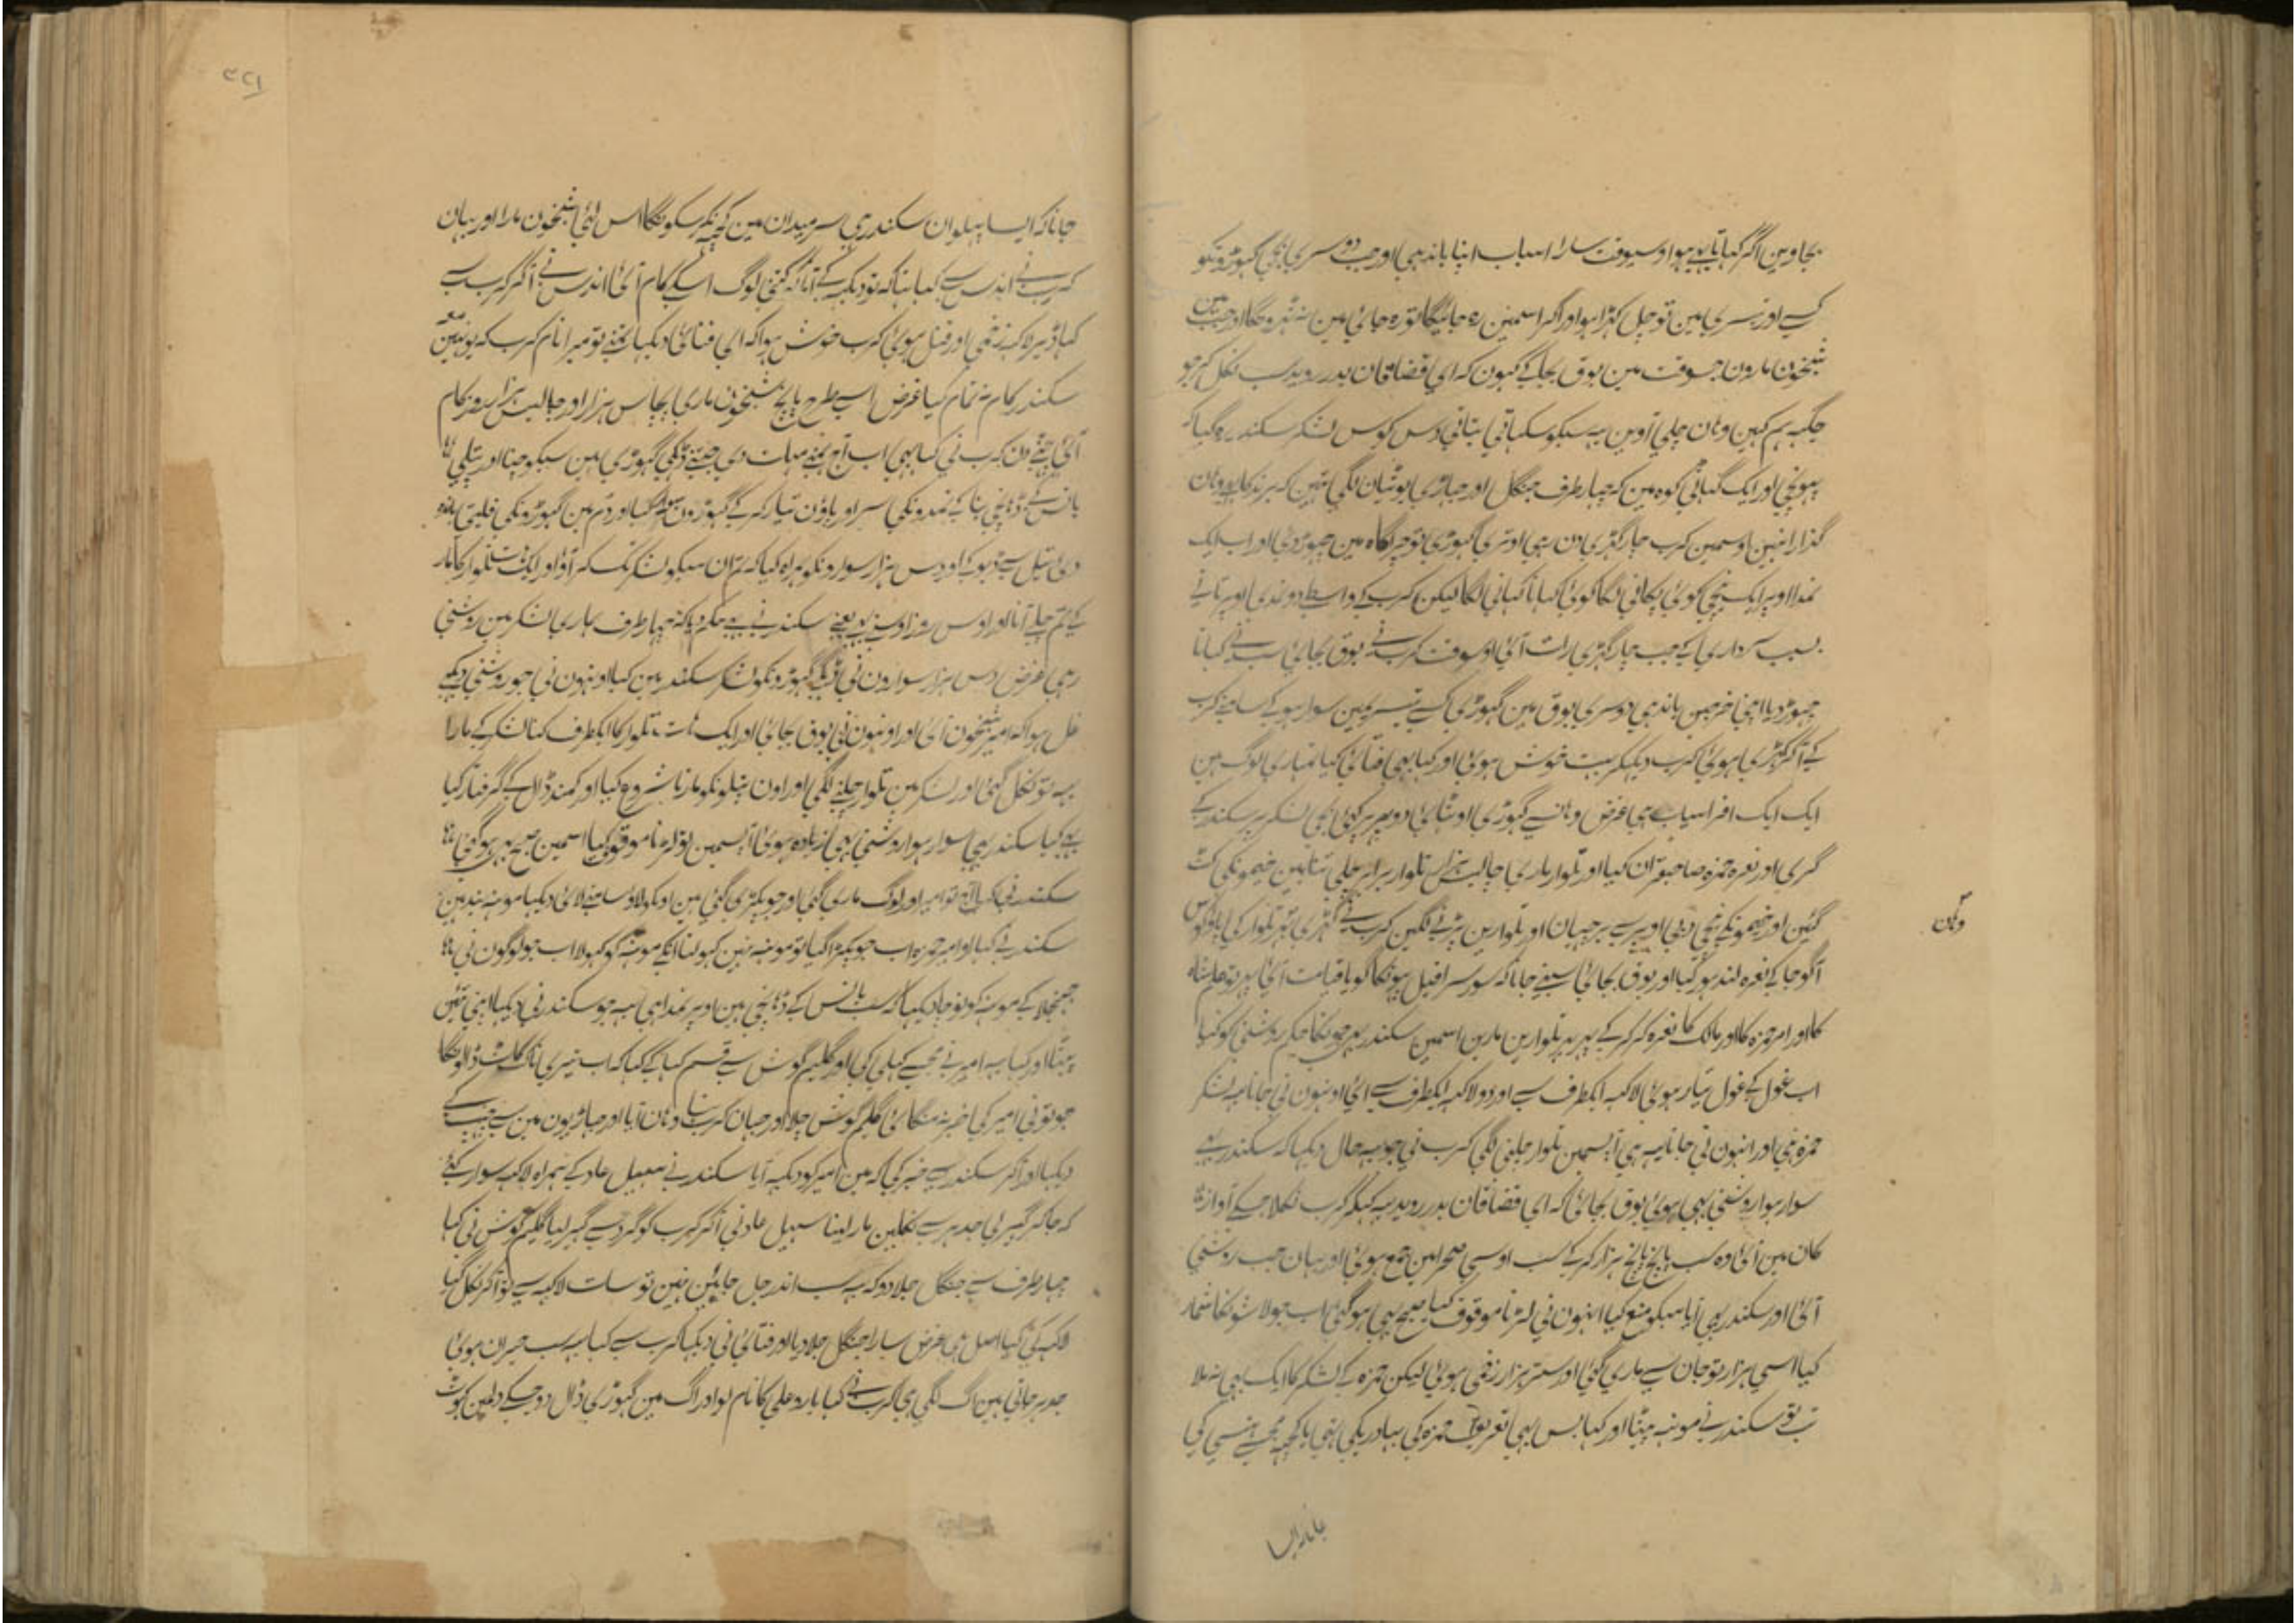 بجاوین اگر کہاتا ہو اوسیوقت سارا اسباب اپنا باندہی اور جب دوسری بجی گہوڑونکو
کسے اور تیسری مین تو چل کہڑا ہو اور اگر اسمین رہ جائیگا تو رہ جائی مین نہ ٹہرونگا اور جب مین
شبخون مارون جسوقت مین بوق بجا کے کہون کہ ای قضاقان بدر روید سب نکل کر جو
جگہہ ہم کہین وہان چلی آوین یہ سبکو سکہاتی بتاتی دس کوس لشکر سکندر رہ گیا کہ
پہونچی اور ایک گہاٹی کوہ مین کہ چہار طرف جنگل اور جہاڑی بوٹیان لگی تہین کہ پرند کا وہان
گذارا نہین اوسمین کرب چار گہڑی دن رہی اوتری گہوڑی تو چراگاہ مین چہوڑ دی اور اب ایک
نمدا اوپر ایک نیچی کوئی پکانی لگا کوئی کہانا کہانی لگا لیکن کرب کے واسطے دو نمدی اوپر تانے
بسبب سرداری کے جب چار گہڑی رات آئی اوسوقت کرب نے بوق بجائی سب نے کہانا
چہوڑ دیا اپنی خرجین باندہی دوسری بوق مین گہوڑی کسے تیسری مین سوار ہو کے سامنے کرب
کے آ کر کہڑی ہوئی کرب دیکہکر بہت خوش ہوئی اور کہا بہی فتائی کیا تمہاری لوگ ہین
ایک ایک افراسیاب ہی غرض وہانسے گہوڑی اوٹہائی دو پہر پر گہڑی بجی لشکر پر سکندر کے
گری اور نعرہ حمزہ صاحبقران کیا اور تلوار ماری چالیس ہزار تلوار برابر چلی طنابین خیمونکی کٹ
گئین اور خیمونکے نیچی دبی اوپر سے برچہیان اور تلوارین پڑنے لگین کرب نے گہڑی بہر تلوار کی اور
وہان
آگو جا کے نعرہ لندہور کیا اور بوق بجائی سبنے جانا کہ صور سرافیل پہونکا گویا قیامت آئی پہر تو علمشاہ
کا اور امیر حمزہ کا اور مالک کا نعرہ کر کر کے پہر پہر تلوارین مارین اسمین سکندر بہی چونکا حکم روشنی کو کیا
اب غول کے غول تیار ہوئی لاکہہ ایکطرف سے اور دو لاکہہ ایکطرف سے آئی اونہون نی جانا یہہ لشکر
حمزہ ہی اور انہون نی جانا یہہ ہی آپسمین تلوار چلنی لگی کرب نی جو یہہ حال دیکہا کہ سکندر بہی
سوار ہوا روشنی بہی ہوئی بوق بجائی کہ ای قضاقان بدر روید یہہ کہکر کرب نکلا جسکے آواز
کان مین آئی وہ سب پانچ پانچ ہزار کر کے سب اوسی صحرا مین جمع ہوئی اور یہان جب روشنی
آئی اور سکندر بہی آیا سبکو منع کیا انہون نی لڑنا موقوف کیا صبح بہی ہو گئی اب جو لاشونکا شمار
کیا اسی ہزار تو جان سے ماری گئی اور ستر ہزار زخمی ہوئی لیکن حمزہ کے لشکر کا ایک بہی نہ ملا
تب تو سکندر نے مونہہ پیٹا اور کہا بس یہی تعریف حمزہ کی بہادریکی تہی یا کچہہ مجہسے ہنسی کی
جانا کہ ایسا
۲۲۱
جانا کہ ایسا پہلوان سکندر ہی سر میدان مین کچہہ نکر سکونگا اس لئی شبخون مارا اور یہان
کرب نے اندلس سے کہا بہا کہ تو دیکہہ کے آتا کہ کتنی لوگ اسکے کام آئی اندلس نے آ کر کرب سے
کہا ڈیڑہ لاکہہ زخمی اور قتل ہوئی کرب خوش ہوا کہ ای فتائی دیکہا تمنے تو میرا نام کرب کہ یونہین
سکندر کا کام نہ تمام کیا غرض اسیطرح پانچ شبخون ماری پچاس ہزار اور چالیس ہزار ہر روز کام
آئی چہٹے دن کرب نی کہا بہی اب آج تمنے مہلت دی جتنے ڈگی گہوڑی ہین سبکو چہنا اور پتلی
بانس کے ڈہانچی بنا کے نمدونکی سر اور پاؤن تیار کر کے گہوڑون پر سوار کیا اور دم مین گہوڑونکی فلیتی باندہ
دی تیل سے ڈبو کے اور دس ہزار سوارونکو ہمراہ کیا کہ تم ان سبکو لشکر تک لے کر آؤ اور ایک ہات تلوار کا مار
کے تم چلے آنا اور اوس روز سکندر نے یہ حکم دیا کہ چہار طرف ہماری لشکر مین روشنی
رہی غرض دس ہزار سوارون نی گہوڑونکو لشکر سکندر مین کیا اونہون نی جو روشنی دیکہی
غل ہوا کہ امیر شبخون آئی اور اونہون نی بوق بجائی اور ایک ہات تلوار کا ایکطرف کنار لشکر کے مارا
یہہ تو نکل گئی اور لشکر مین تلوار چلنے لگی اور اون پتلونکو مارنا شروع کیا اور کمند ڈال کے گرفتار کیا
سکندر بہی سوار ہوا روشنی بہی زیادہ ہوئی آپسمین تو لڑنا موقوف کیا اسمین صبح بہی ہو گئی
سکندر نی کہا آج تو امیر اور لوگ ماری گئی اور جو پکڑی گئی ہین اونکو لاؤ سامنے لائی دیکہا مونہہ بند ہین
سکندر نے کہا او امیر حمزہ اب جو پکڑا گیا تو مونہہ نہین کہولتا انکے مونہہ کو کہولا اب جو لوگون نی
جہنجلا کے مونہہ کو نوچا دیکہا کہ سب بانس کے ڈہانچی ہین اوپر نمدا ہی یہ جو سکندر نی دیکہا اپنی تئین
پیٹا اور کہا یہہ امیر نے مجہسے کی اور گلیم گوش سے قسم کہا کے کہا کہ اب تیری ناک کاٹ ڈالونگا
جو تو نی امیر کی خبر نہ منگائی گلیم گوش چلا اور جہان کرب تہا وہان آیا اور جہاڑیون مین سے چہپ کے
دیکہا اور آ کر سکندر سے خبر کی کہ مین امیر کو دیکہہ آیا سکندر نے سہیل عاد کے ہمراہ لاکہہ سوار کئے
کہ جا کر گہیر لی جدہر سے نکلین مار لینا سہیل عاد نی آ کر کرب کو گرد سے گہیر لیا گلیم گوش نی کہا
چہار طرف سے جنگل جلا دو کہ یہہ سب اندر جل جائین نہین تو سات لاکہہ سے لڑ کر نکل گیا
لاکہہ کی کیا اصل ہی غرض سارا جنگل جلا دیا اور فتائی نی دیکہا کرب سے کہا یہہ سب حیران ہوئی
جدہر جاتی ہین آگ لگی ہی کرب نے کہا یارو علی کا نام لو اور آگ مین گہوڑی ڈال دو جسکے دلمین